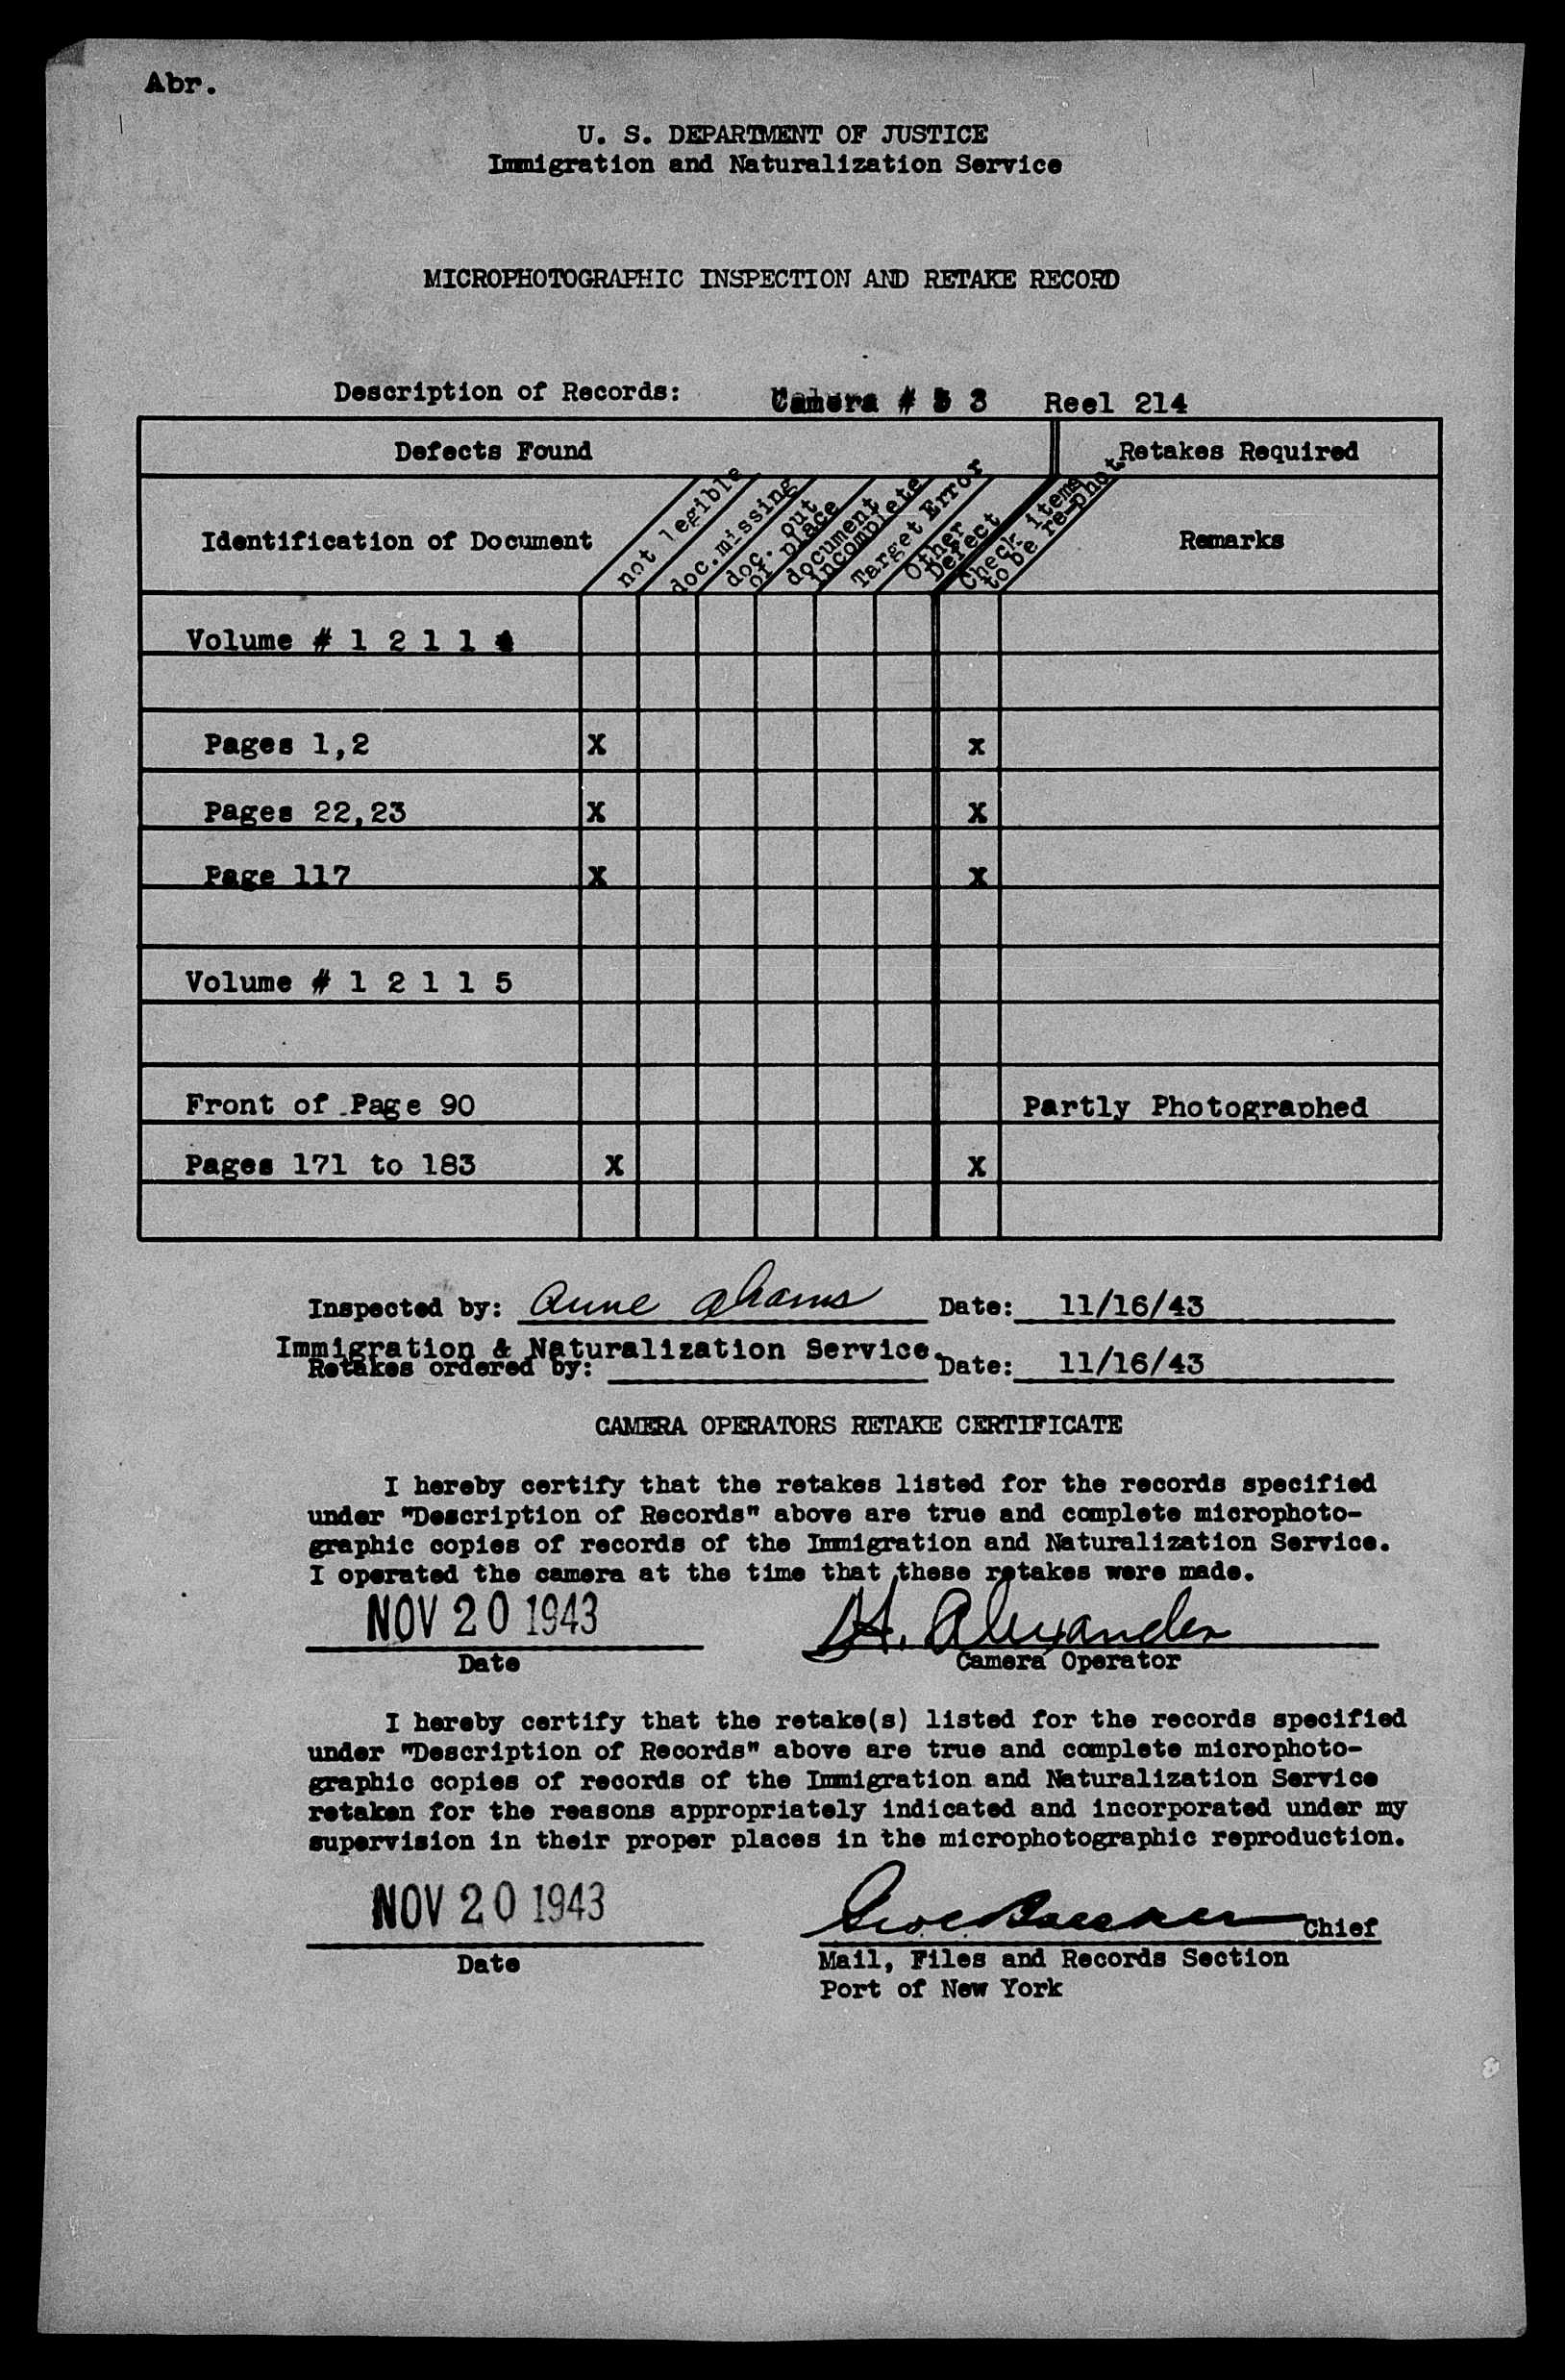 Abr.
U. S. DEPARTMENT OF JUSTICE
Immigration and Naturalization Service
MICROPHOTOGRAPHIC INSPECTION AND RETAKE RECORD
Description of Records: Camera # 3 Reel 214
Defects Found Retakes Required
Identification of Document not legible doc.missing doc. out of place document incomplete Target Error Other Defect Check items to be re-phot Remarks
Volume # 1 2 1 1 4
Pages 1,2 X x
Pages 22,23 X X
Page 117 X X
Volume # 1 2 1 1 5
Front of Page 90 Partly Photographed
Pages 171 to 183 X X
Inspected by: Anne Date: 11/16/43
Immigration & Naturalization Service.
Retakes ordered by: Date: 11/16/43
CAMERA OPERATORS RETAKE CERTIFICATE
I hereby certify that the retakes listed for the records specified
under "Description of Records" above are true and complete microphoto-
graphic copies of records of the Immigration and Naturalization Service.
I operated the camera at the time that these retakes were made.
NOV 20 1943 H. Alexander
Date Camera Operator
I hereby certify that the retake(s) listed for the records specified
under "Description of Records" above are true and complete microphoto-
graphic copies of records of the Immigration and Naturalization Service
retaken for the reasons appropriately indicated and incorporated under my
supervision in their proper places in the microphotographic reproduction.
NOV 20 1943 Chief
Date Mail, Files and Records Section
Port of New York